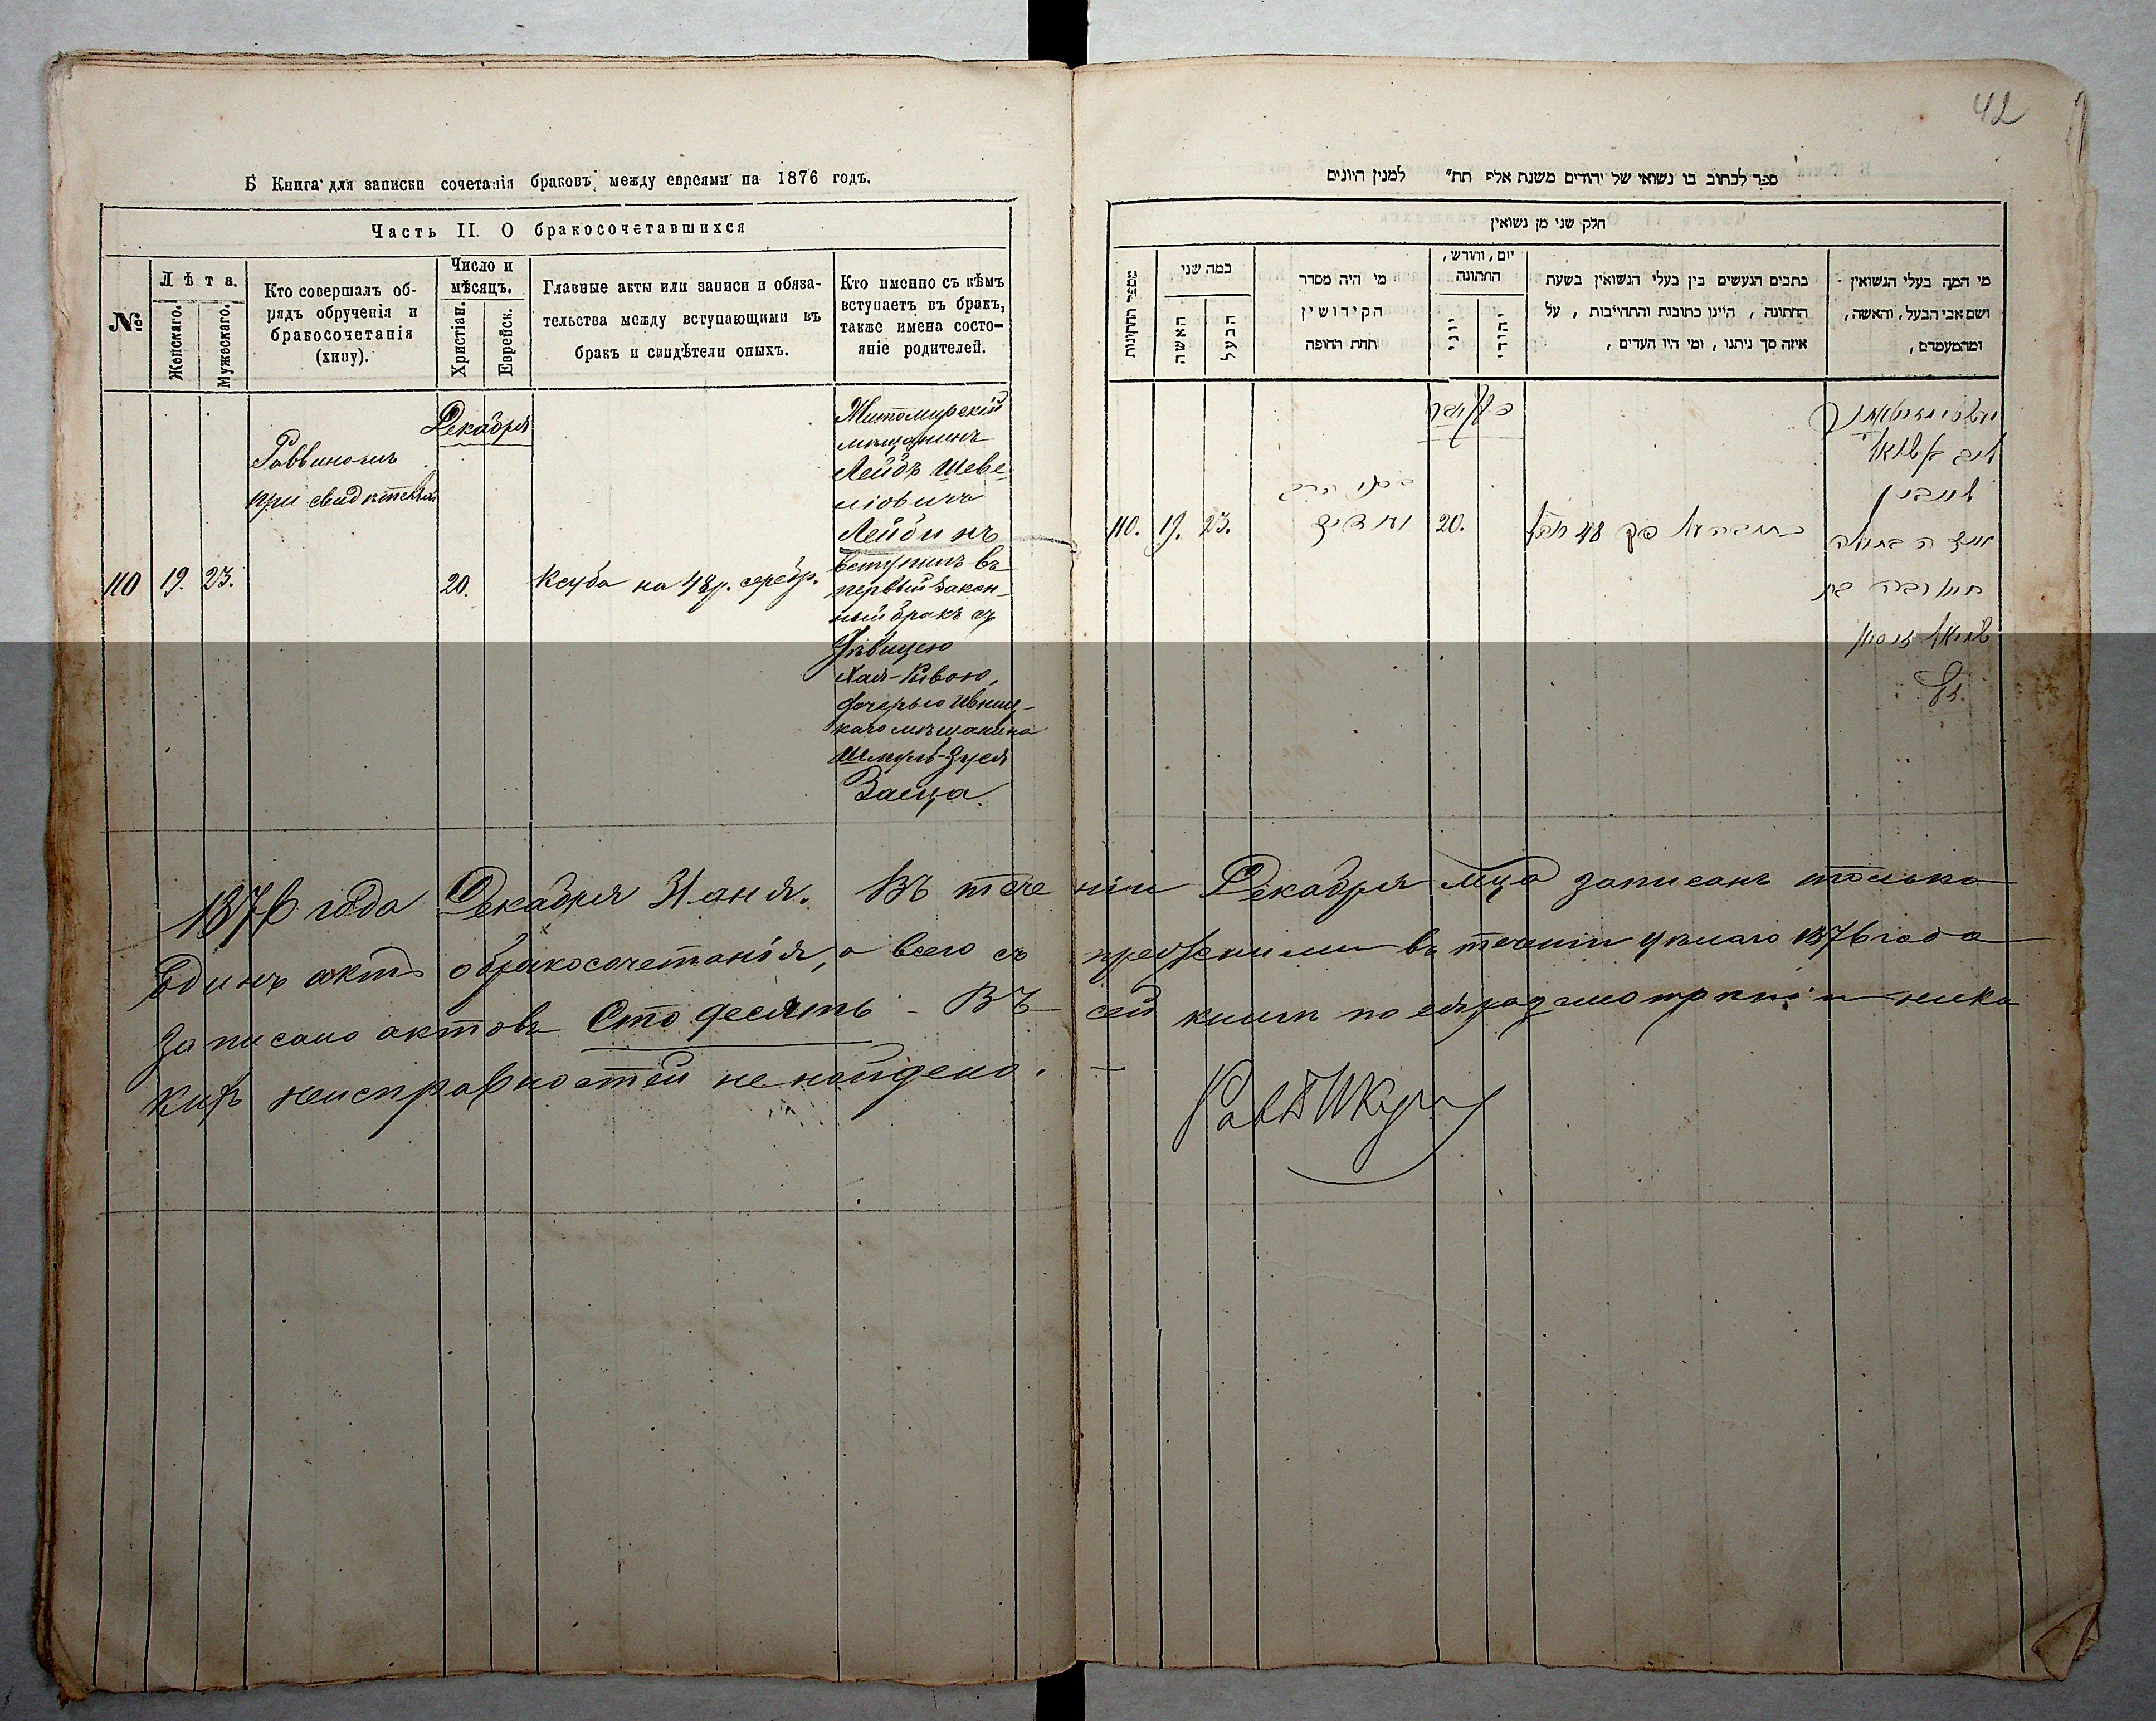 42
Б Книга для записки сочетанія браковъ между евреями на 1876 годъ.
Часть II. О бракосочетавшихся
№
Лѣта.
Женскаго.
Мужескаго.
Кто совершалъ об-
рядъ обрученія и
бракосочетанія
(хипу).
Число и
мѣсяцъ.
Христіан.
Еврейск.
Главные акты или записи и обяза-
тельства между вступающими въ
бракъ и свидѣтели оныхъ.
Кто именно съ кѣмъ
вступаетъ въ бракъ,
также имена состо-
яніе родителей.
110
19.
23.
Раввиномъ
при свидѣтеляхъ
Декабря
20.
Ксуба на 48 р. серебр.
Житомирскій
мѣщанинъ
Лейбъ Шеве-
ліовичъ
Лейбинъ
вступилъ въ
первый закон-
ный бракъ съ
Дѣвицею
Хая-Ривою,
дочерью Ивниц-
каго мѣщанина
Шмуль-Зуся
Заица.
ספר לכתוב בו נשואי של יהודים משנת אלף תת״ למנין היונים
חלק שני מן נשואין
מספר החתונות
במה שני
האשה
הבעל
מי היה מסדר
הקידושין
תחת החופה
יום, וחודש,
החתונה
יוני
יהודי
כתבים הנעשים בין בעלי הנשואין בשעת
החתונה, היינו כתובות והתחייבות, על
איזה סך ניתנו, ומי היו העדים,
מי המה בעלי הנשואין
ושם אבי הבעל, והאשה,
ומהמעמדם,
110.
19.
23.
20.
48
1876 года Декабря 31 дня. Въ тече ніи Декабря мца записанъ только
Единъ актъ обракосочетанія, а всего съ прежними въ теченіи цѣлаго 1876 года
записано актовъ Сто десять - Въ сей книгѣ по ея разсмотрѣніи ника
кихъ неисправностей не найдено. -